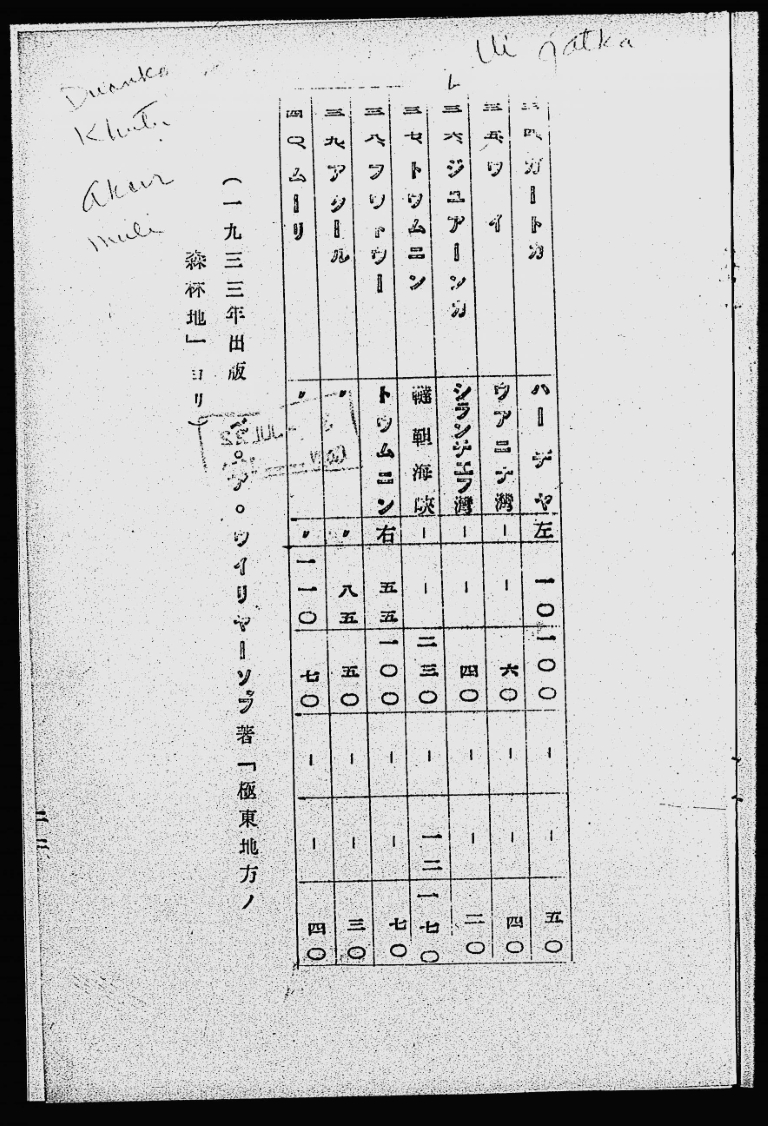 Ui gatka
Duanka
Khuti
Akur
muli
三四、ガートカ ハーヂヤ 左 一〇 一〇〇 ー ー 五〇
三五、ウイ ウアニナ灣 ー ー 六〇 ー ー 四〇
三六、ジユアーンカ シランチエフ灣 ー ー 四〇 ー ー 二〇
三七、トウムニン 韃靼海峽 ー ー 二三〇 ー 一二 一七〇
三八、フウトウー トウムニン 右 五五 一〇〇 ー ー 七〇
三九、アクール 〃 〃 八五 五〇 ー ー 三〇
四〇、ムーリ 〃 〃 一一〇 七〇 ー ー 四〇
(一九三三年出版 ア。ウイリヤーソブ著「極東地方ノ
森林地」ヨリ)
二二